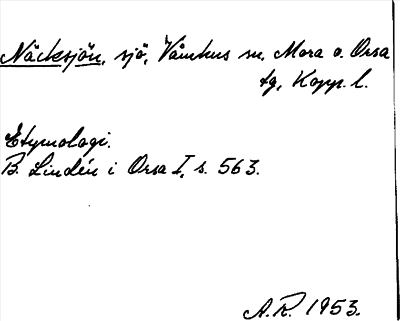 Näcksjön, sjö, Våmhus sn, Mora o. Orsa
tg, Kopp. l.
Etymologi.
B. Lindén i Orsa I, s. 563.
A.R. 1953.